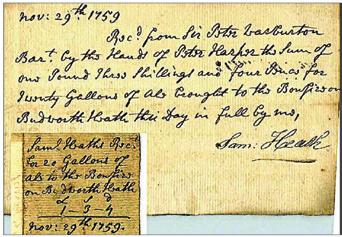 Nov: 29th. 1759
Recd. from Sir Peter Warburton
Bart. by the Hands of Peter Harper the Sum of
one Pound Three Shillings and four Pence for
Twenty Gallons of Ale brought to the Bonfire on
Budworth Heath this Day in full by me,
Sam: Heath
Saml. Heaths Rec:
for 20 Gallons of
Ale to the Bonfire
on Budworth Heath
L S D
1-3-4
Nov: 29th. 1759.